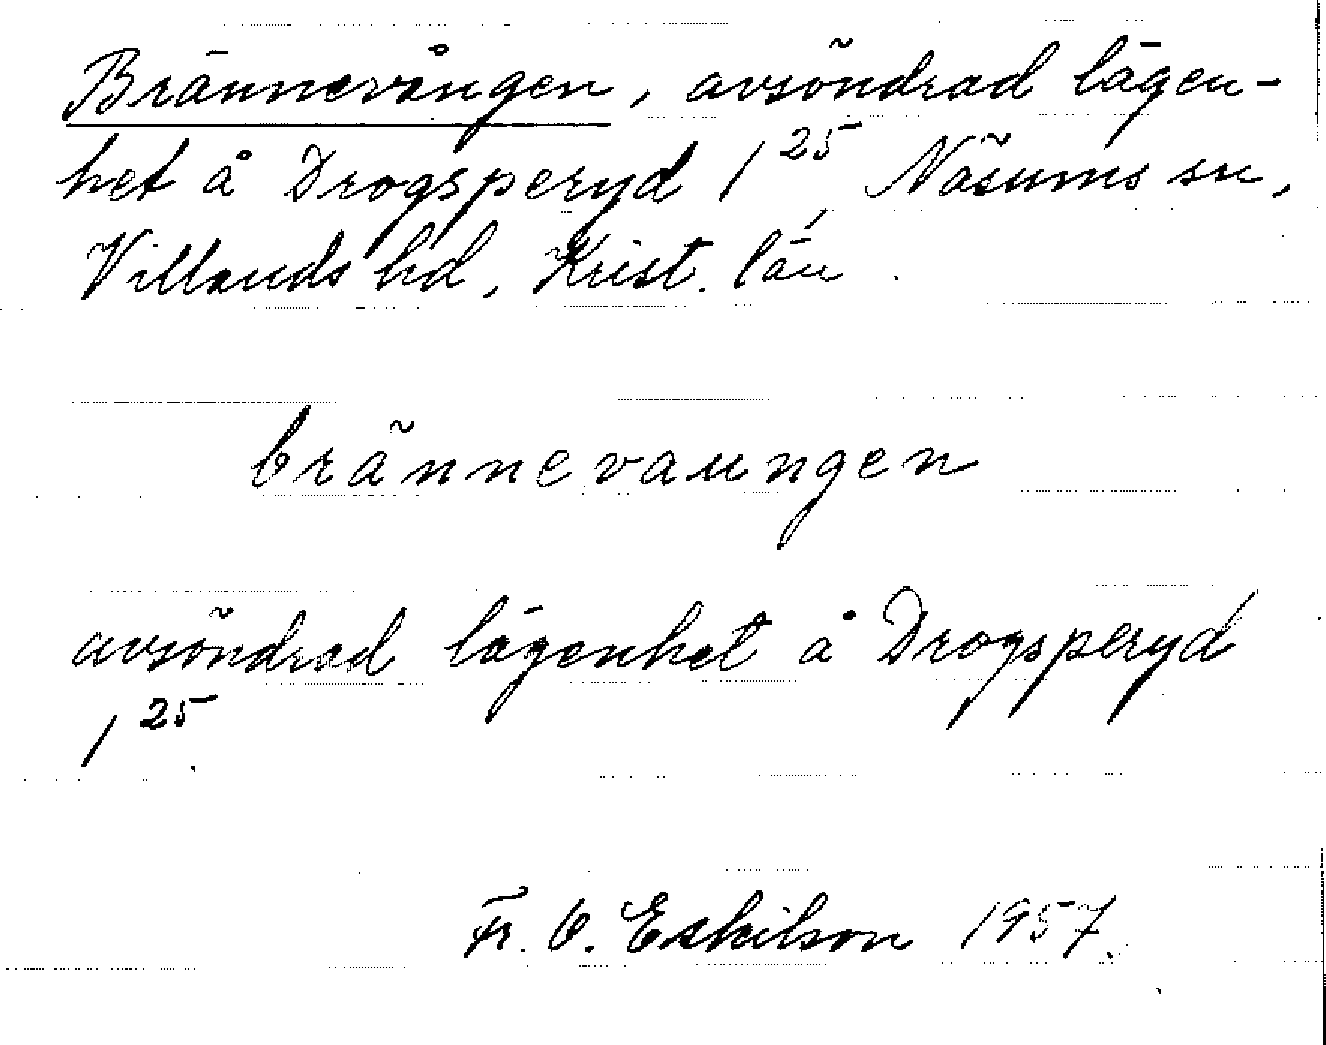 Brännevången, avsöndrad lägen-
het å Drogsperyd 1²⁵, Näsums sn,
Villands hd, Krist. län.
brännevaungen
avsöndrad lägenhet å Drogsperyd
1²⁵.
Fr. O. Eskilson 1957.